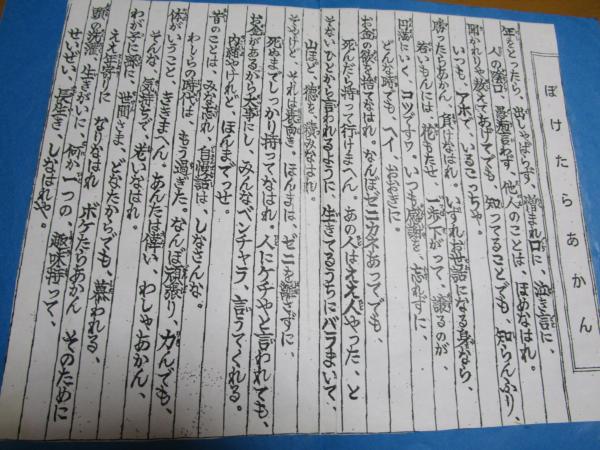 ぼけたらあかん
年をとったら、出しゃばらず、憎まれ口に、泣き言に、
人の陰口、愚痴言わず、他人のことは、ほめなはれ。
聞かれりゃ教えてあげてでも、知ってることでも、知らんふり、
いつも、アホで、いるこっちゃ。
勝ったらあかん、負けなはれ。いずれお世話になる身なら、
若いもんには、花もたせ、一歩下がって、譲るのが、
円満にいく、コツですワ。いつも感謝を、忘れずに、
どんな時でも、ヘイ、おおきに。
お金の欲を捨てなはれ。なんぼゼニカネあってでも、
死んだら持って行けまへん。あの人はええ人やった、と
そないひとから言われるように生きてるうちにバラまいて、
山ほど、徳を積みなはれ。
そやけど、それは表向き、ほんまは、ゼニを離さずに、
死ぬまでしっかり持ってなはれ。人にケチやと言われても、
お金があるから大事にし、みんなベンチャラ、言うてくれる。
内緒やけれど、ほんまでっせ。
昔のことは、みな忘れ、自慢話は、しなさんな。
わしらの時代は、もう過ぎた。なんぼ頑張り力んでも、
体がいうこと、ききまへん。あんたは偉い、わしゃあかん、
そんな、気持ちで、老いなはれ。
わが子に孫に、世間さま、どなたからでも、慕われる、
ええ年寄りに、なりなはれ ボケたらあかん そのために
頭の洗濯、生きがいに、何か一つの趣味持って、
せいぜい、長生き、しなはれや。